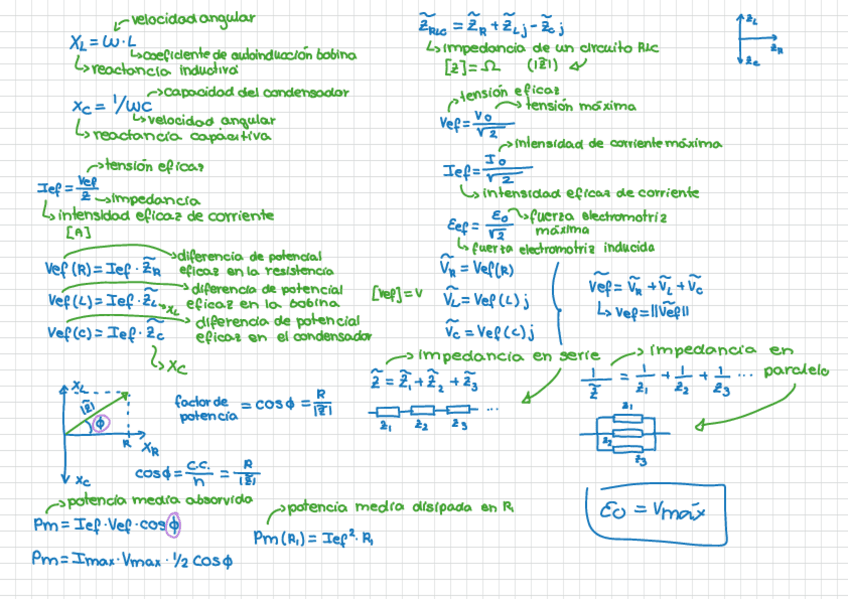 velocidad angular
X_L = ω·L
coeficiente de autoinducción bobina
reactancia inductiva
capacidad del condensador
X_C = 1/ωC
velocidad angular
reactancia capacitiva
tensión eficaz
Ief = Vef/Z
impedancia
intensidad eficaz de corriente
[A]
Vef (R) = Ief · Z̃_R
diferencia de potencial
eficaz en la resistencia
Vef (L) = Ief · Z̃_L
X_L
diferencia de potencial
eficaz en la bobina
[Vef] = V
Vef (C) = Ief · Z̃_C
diferencia de potencial
eficaz en el condensador
X_C
X_L
|Z̃|
ϕ
R
X_R
X_C
factor de
potencia
= cosϕ = R/|Z̃|
cosϕ = c.c./h = R/|Z̃|
potencia media absorvida
Pm = Ief · Vef · cosϕ
Pm = Imax · Vmax · 1/2 cosϕ
potencia media disipada en R₁
Pm (R₁) = Ief² · R₁
Z̃_RLC = Z̃_R + Z̃_L j - Z̃_C j
impedancia de un circuito RLC
[Z] = Ω (|Z̃|)
Z_L
Z_R
Z_C
tensión eficaz
tensión máxima
Vef = V₀/√2
intensidad de corriente máxima
Ief = I₀/√2
intensidad eficaz de corriente
Eef = Ɛ₀/√2
fuerza electromotriz
máxima
fuerza electromotriz inducida
Ṽ_R = Vef (R)
Ṽ_L = Vef (L) j
Ṽ_C = Vef (C) j
Ṽef = Ṽ_R + Ṽ_L + Ṽ_C
Vef = ||Ṽef||
impedancia en serie
Z̃ = Z̃₁ + Z̃₂ + Z̃₃
Z₁ Z₂ Z₃ ...
impedancia en
paralelo
1/Z̃ = 1/Z₁ + 1/Z₂ + 1/Z₃ ...
Z₁
Z₂
Z₃
Ɛ₀ = Vmáx